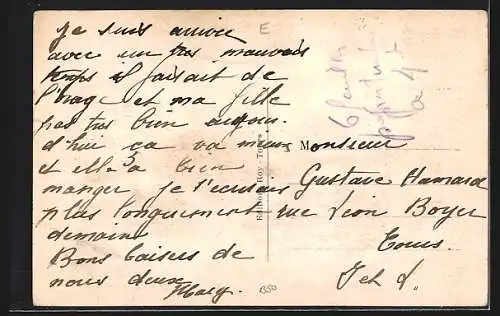 je suis arrivée
avec un tres mauvais
temps il faisait de
l'orage et ma fille
pas tres bien aujour
d'hui ça va mieux
et elle a bien
manger je t'ecrirais
plus longuement
demain
Bons baisers de
nous deux
E
Monsieur
Gustave Hamard
rue Léon Boyer
Tours.
I et L.
Editions Roy Tours
350